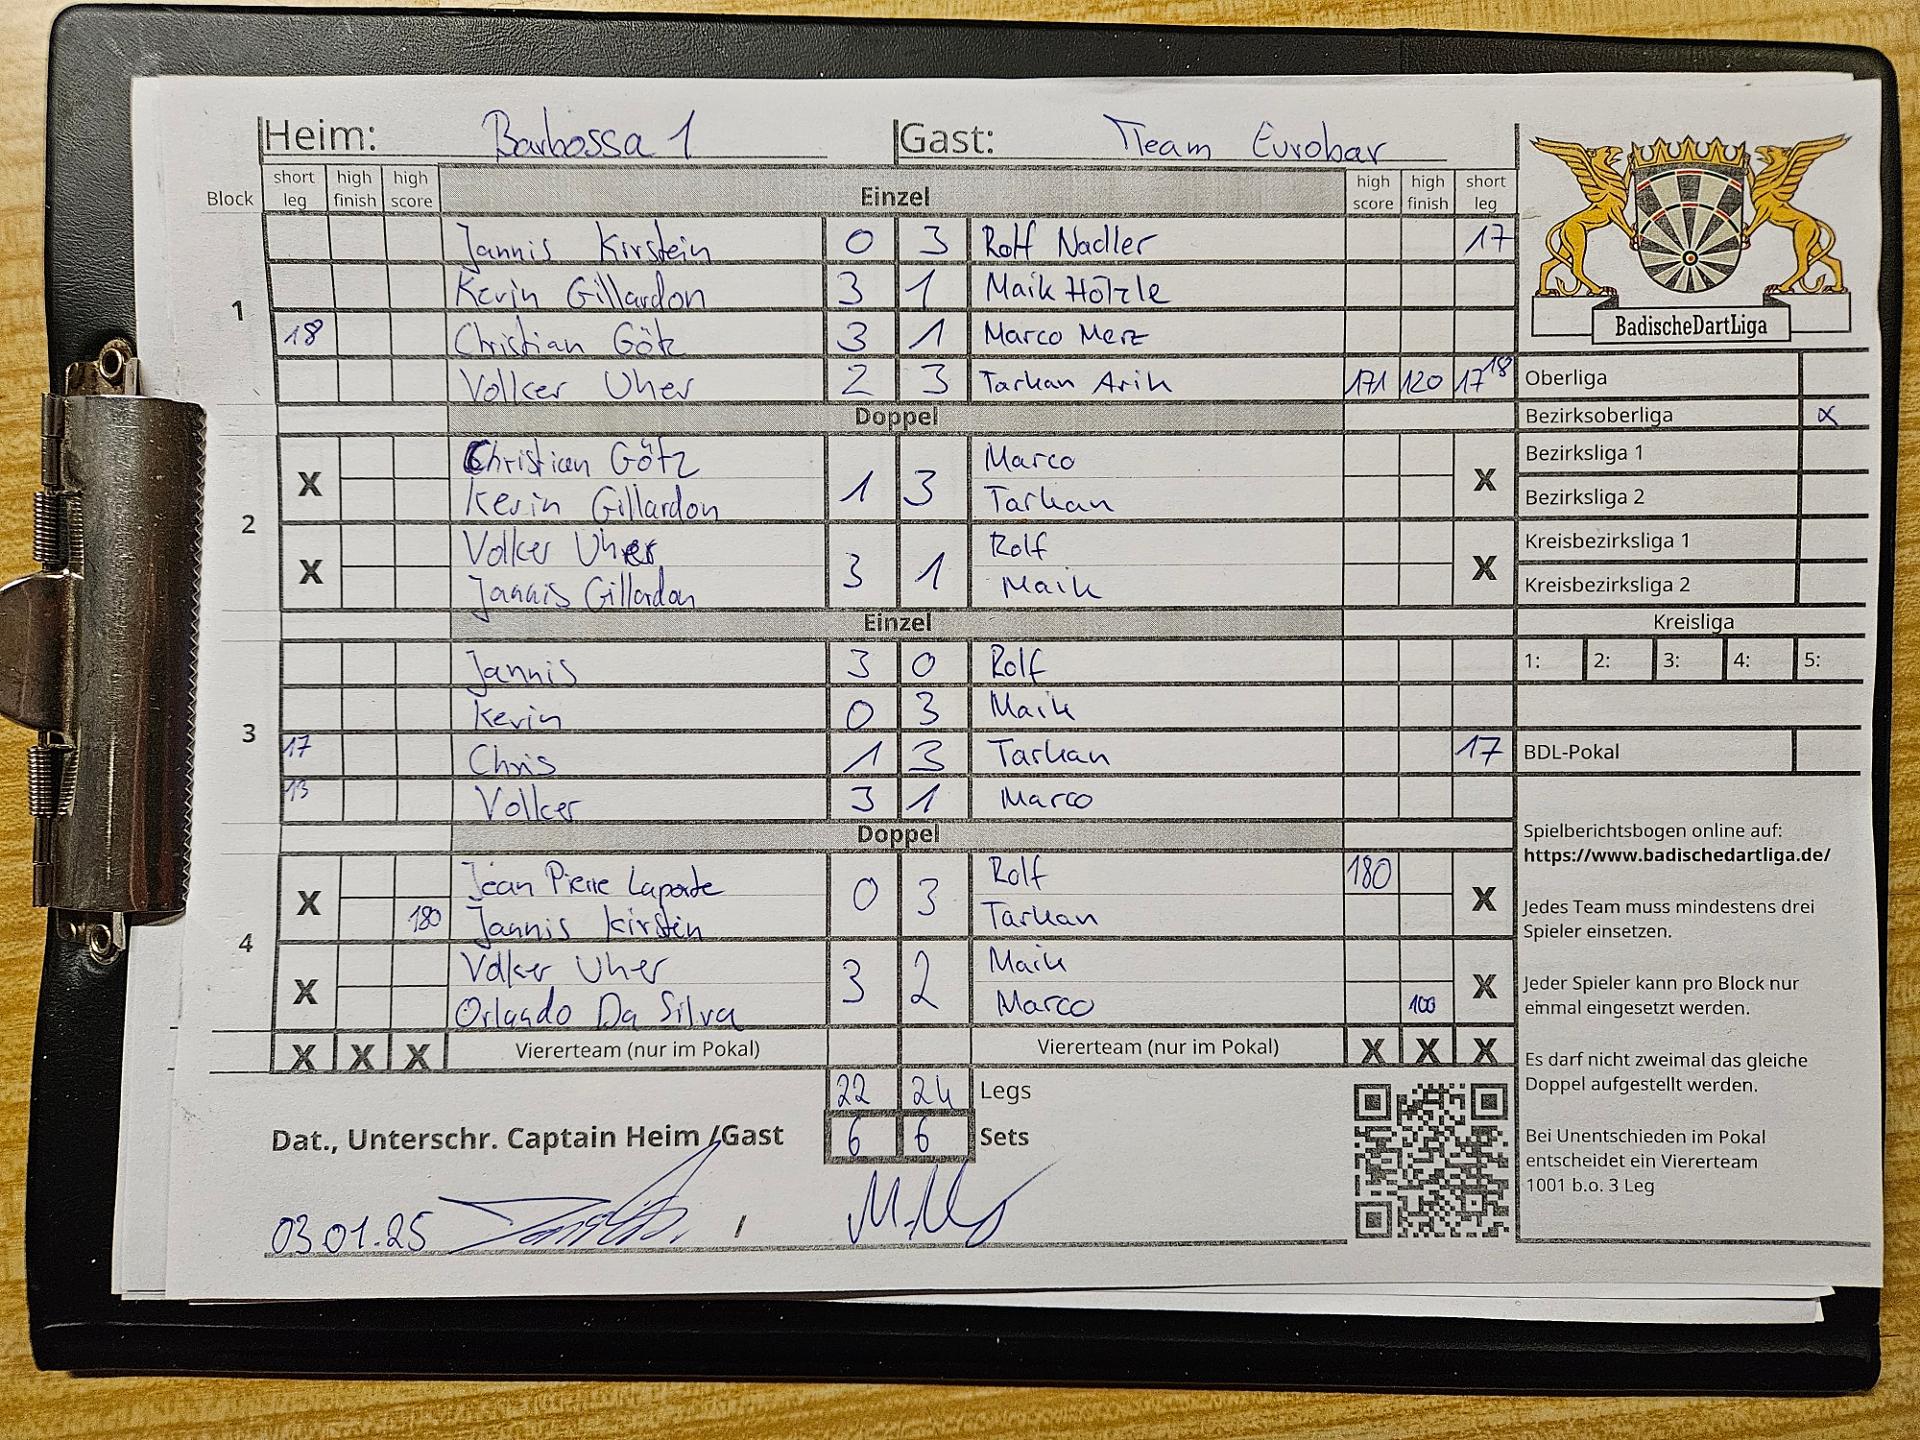 Heim: Barbossa 1 Gast: Team Eurobar
Block short leg high finish high score Einzel high score high finish short leg
1
Jannis Kirstein 0 3 Rolf Nadler 17
Kevin Gillardon 3 1 Maik Hölzle
18 Christian Götz 3 1 Marco Merz
Volker Uher 2 3 Tarkan Arik 171 120 17 18
Doppel
2
X Christian Götz 1 3 Marco X
Kevin Gillardon Tarkan
X Volker Uher 3 1 Rolf X
Jannis Gillardon Maik
Einzel
3
Jannis 3 0 Rolf
Kevin 0 3 Maik
17 Chris 1 3 Tarkan 17
13 Volker 3 1 Marco
Doppel
4
X Jean Pierre Laporte 0 3 Rolf 180 X
180 Jannis Kirstein Tarkan
X Volker Uher 3 2 Maik X
Orlando Da Silva Marco 100
X X X Viererteam (nur im Pokal) Viererteam (nur im Pokal) X X X
22 24 Legs
Dat., Unterschr. Captain Heim /Gast 6 6 Sets
03.01.25 /
BadischeDartLiga
Oberliga
Bezirksoberliga x
Bezirksliga 1
Bezirksliga 2
Kreisbezirksliga 1
Kreisbezirksliga 2
Kreisliga
1: 2: 3: 4: 5:
BDL-Pokal
Spielberichtsbogen online auf:
https://www.badischedartliga.de/
Jedes Team muss mindestens drei
Spieler einsetzen.
Jeder Spieler kann pro Block nur
einmal eingesetzt werden.
Es darf nicht zweimal das gleiche
Doppel aufgestellt werden.
Bei Unentschieden im Pokal
entscheidet ein Viererteam
1001 b.o. 3 Leg